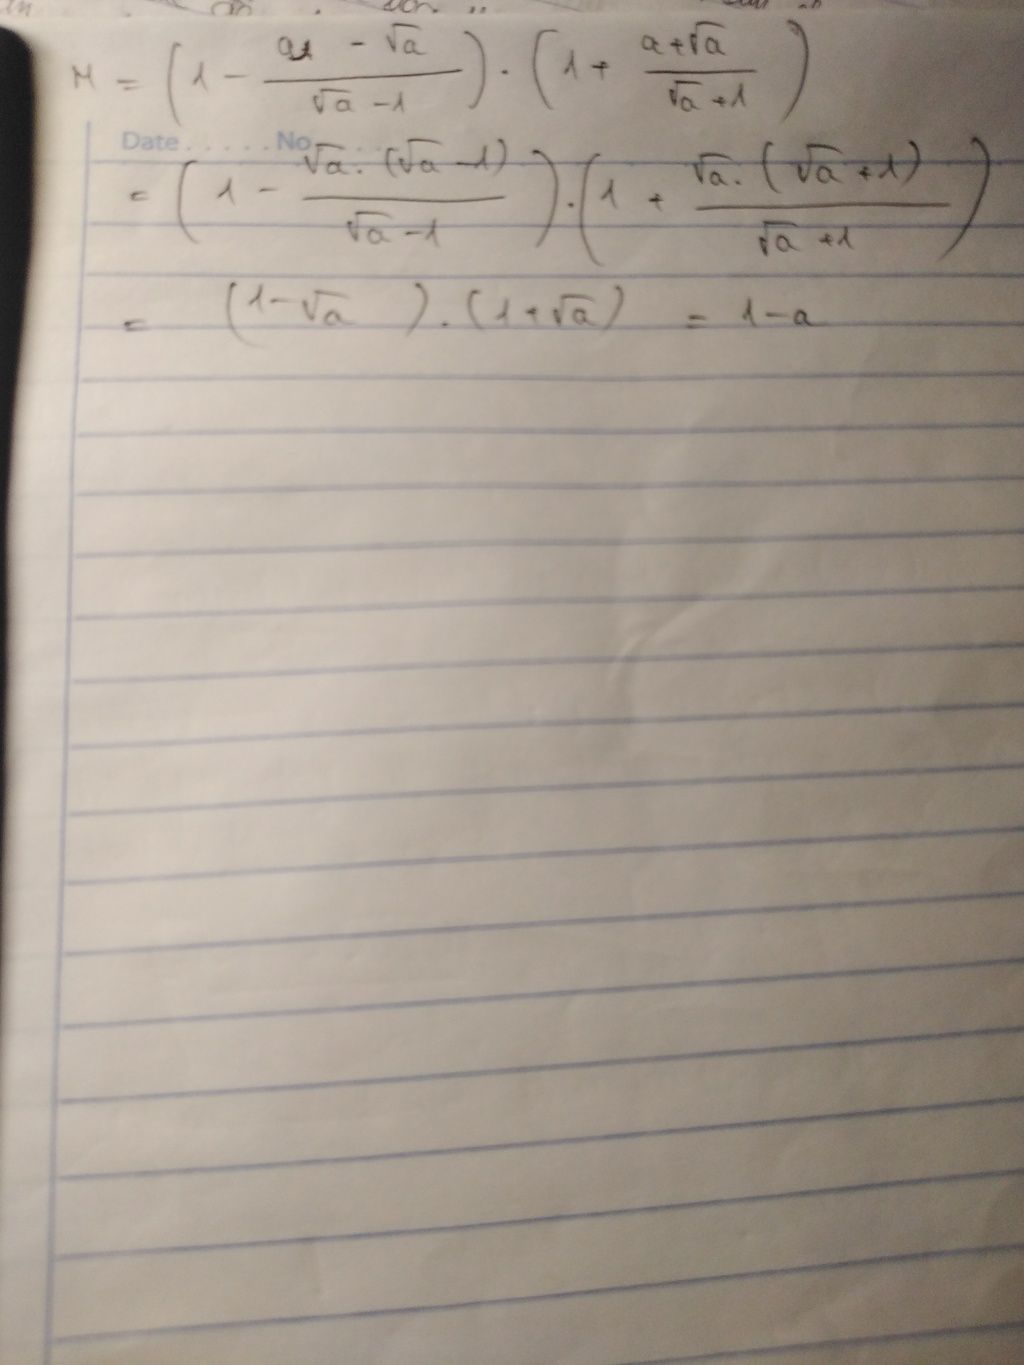 M = (1 - (a - √a)/(√a - 1)) . (1 + (a + √a)/(√a + 1))
Date . . . . . . No
= (1 - (√a . (√a - 1))/(√a - 1)) . (1 + (√a . (√a + 1))/(√a + 1))
= (1 - √a) . (1 + √a) = 1 - a